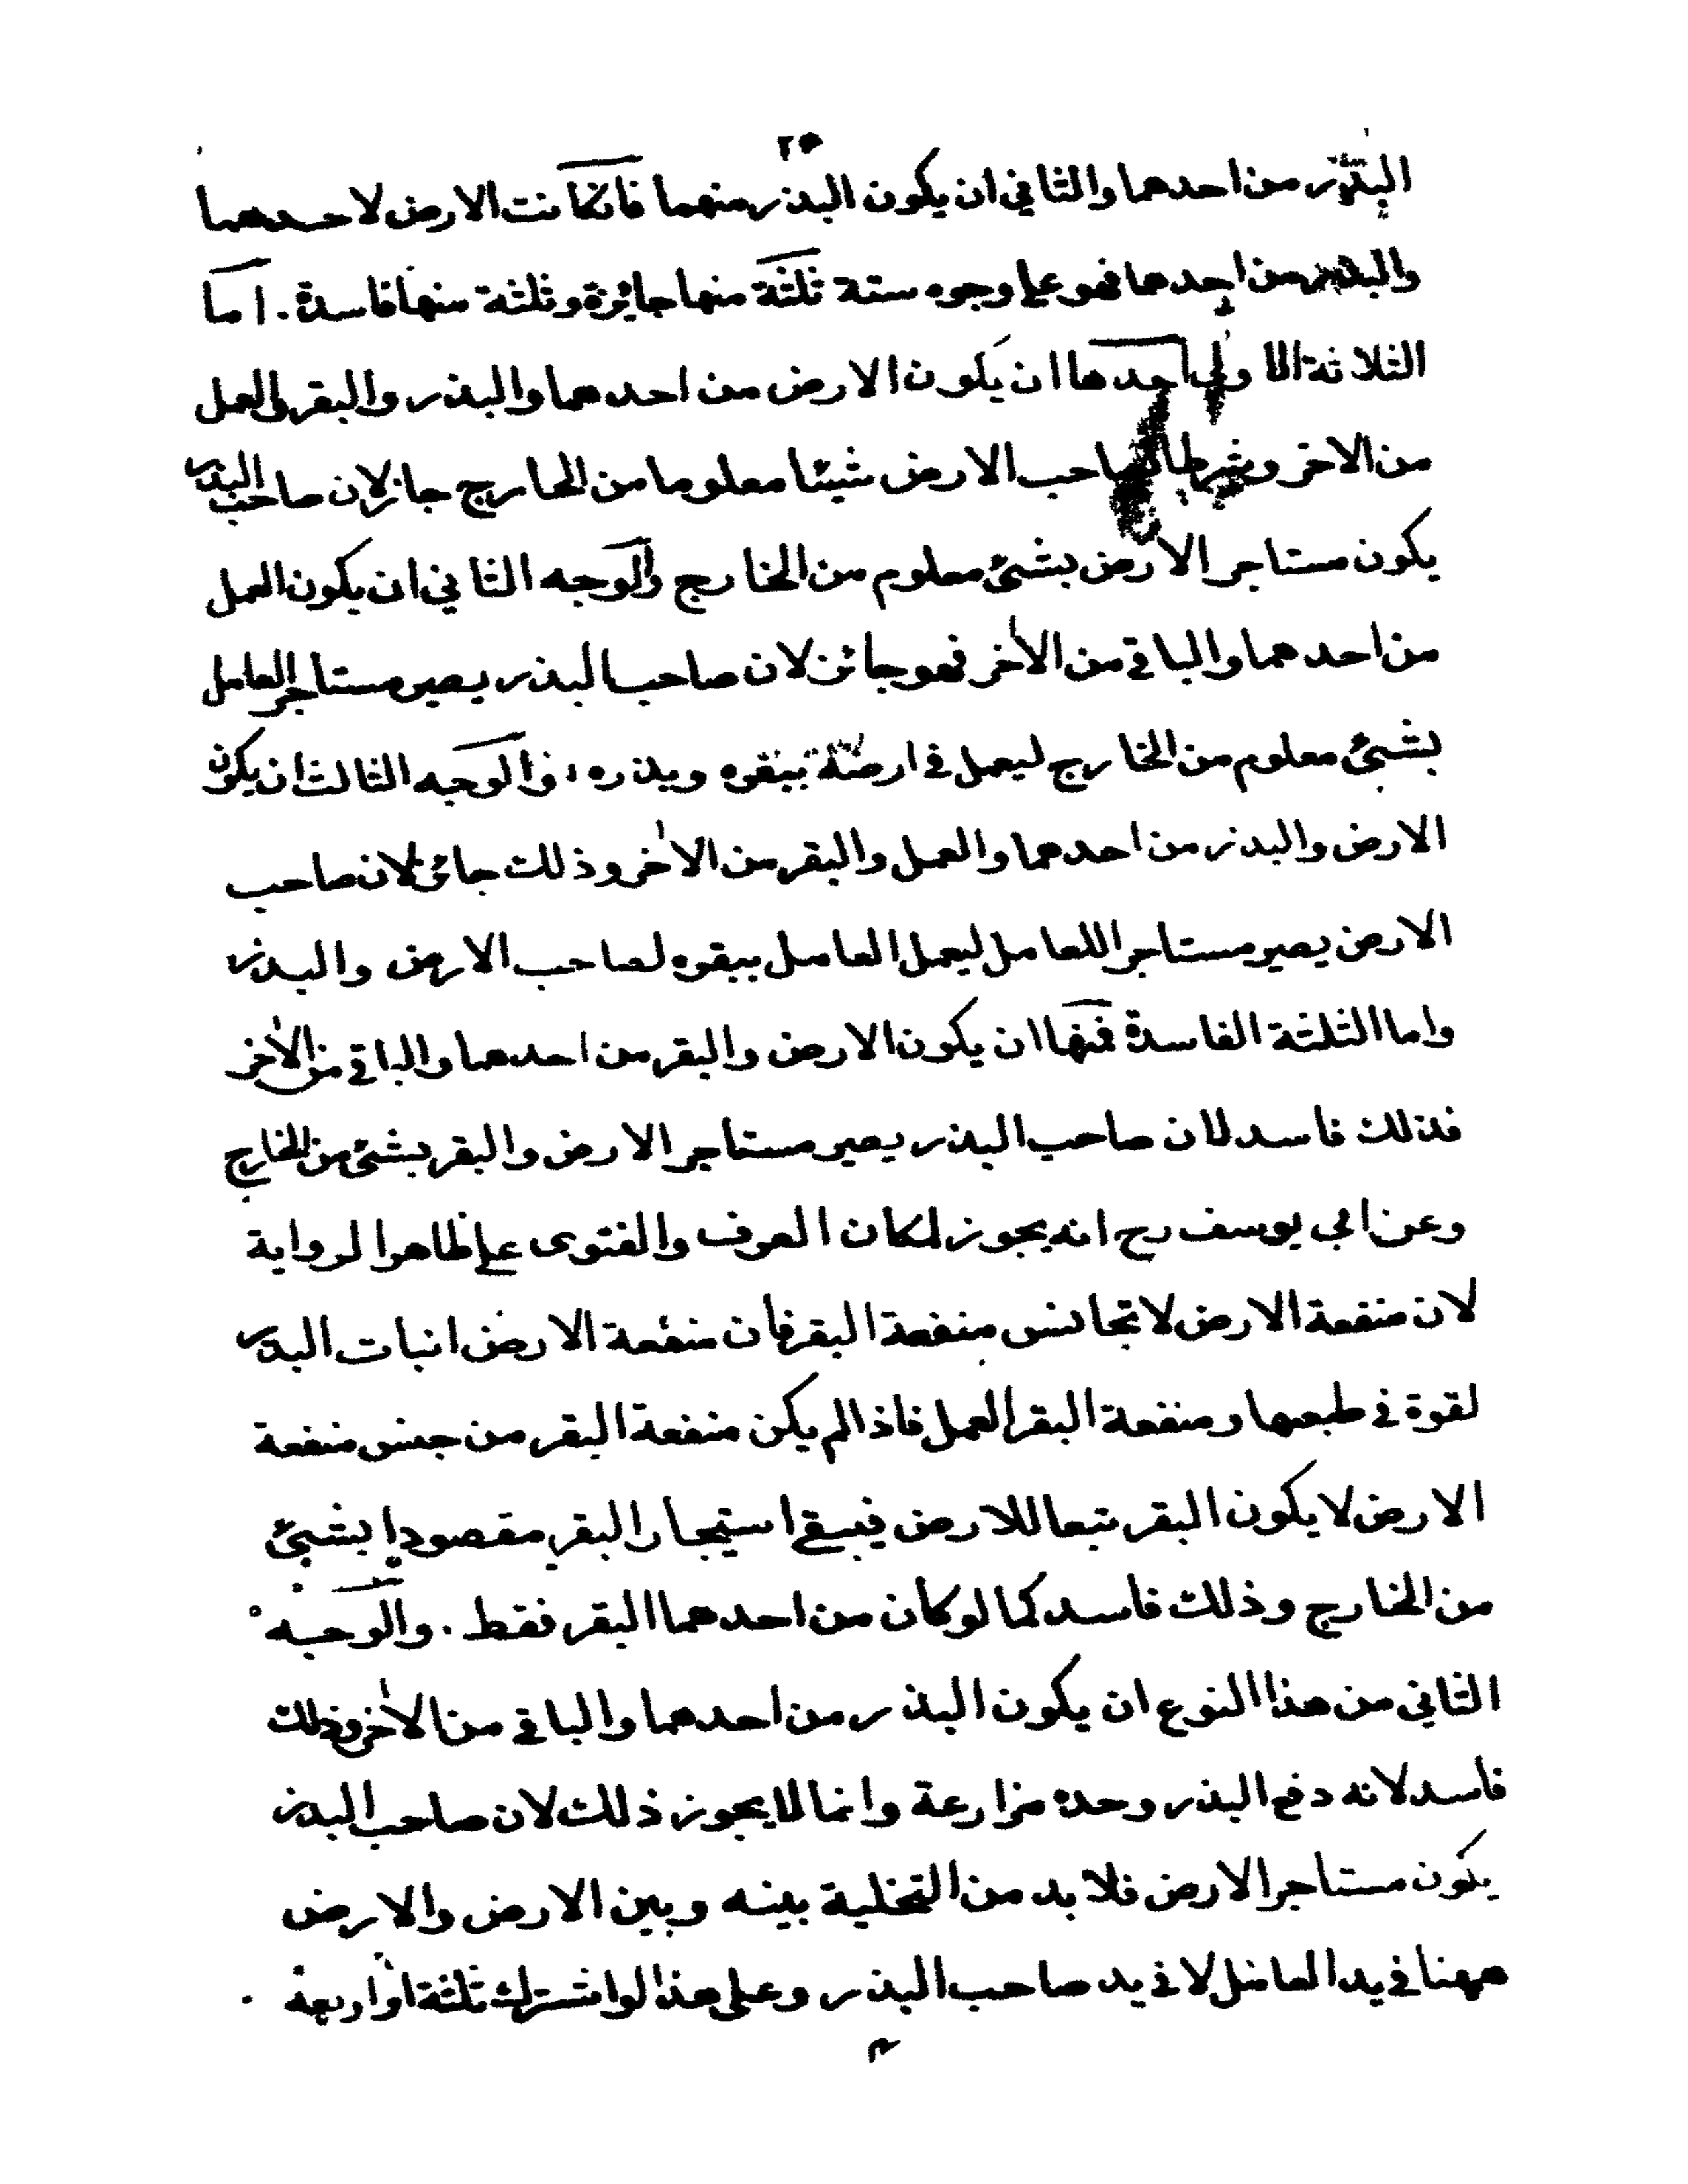 ٢٥
البذر من احدهما والثاني ان يكون البذر منهما فانكانت الارض لاحدهما
والبذر من احدهما فهو على وجوه ستة ثلثة منها جائزة وثلثة منها فاسدة . اما
الثلاثة الاولى احدها ان يكون الارض من احدهما والبذر والبقر والعمل
من الاخر وشرطا لصاحب الارض شيئا معلوما من الخارج جاز لان صاحب البذر
يكون مستاجر الارض بشئ معلوم من الخارج والوجه الثاني ان يكون العمل
من احدهما والباقي من الأخر فهو جائز لان صاحب البذر يصير مستاجر العامل
بشئ معلوم من الخارج ليعمل في ارضه ببقره وبذره ، والوجه الثالث ان يكون
الارض والبذر من احدهما والعمل والبقر من الأخر وذلك جائز لان صاحب
الارض يصير مستاجرا للعامل ليعمل العامل ببقره لصاحب الارض والبذر
واما الثلثة الفاسدة فمنها ان يكون الارض والبقر من احدهما والباقي من الأخر
فذلك فاسد لان صاحب البذر يصير مستاجر الارض والبقر بشئ من الخارج
وعن ابي يوسف رح انه يجوز لمكان العرف والفتوى على ظاهر الرواية
لان منفعة الارض لا تجانس منفعة البقر فان منفعة الارض انبات البذر
لقوة في طبعها ومنفعة البقر العمل فاذا لم يكن منفعة البقر من جنس منفعة
الارض لا يكون البقر تبعا للارض فيبقى استيجار البقر مقصودا بشئ
من الخارج وذلك فاسد كما لو كان من احدهما البقر فقط . والوجه
الثاني من هذا النوع ان يكون البذر من احدهما والباقي من الأخر وذلك
فاسد لانه دفع البذر وحده مزارعة وانما لا يجوز ذلك لان صاحب البذر
يكون مستاجر الارض فلا بد من التخلية بينه وبين الارض والارض
ههنا في يد العامل لا في يد صاحب البذر وعلى هذا لو اشترك ثلثة او اربعة